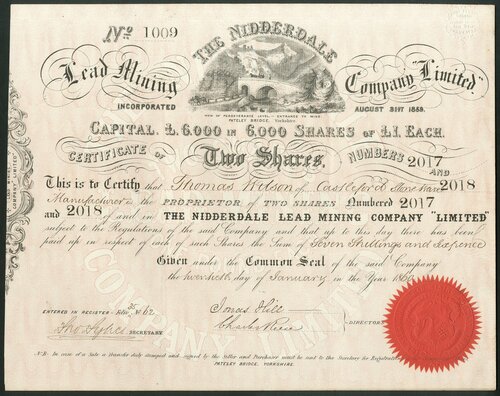 No 1009
THE NIDDERDALE
Lead Mining Company "Limited"
INCORPORATED AUGUST 31ST 1858.
VIEW OF PERSEVERANCE LEVEL - ENTRANCE TO MINE
PATELEY BRIDGE, Yorkshire.
CAPITAL. £.6,000 IN 6,000 SHARES OF £.1. EACH.
CERTIFICATE OF Two Shares, NUMBERS 2017
AND 2018
This is to Certify that Thomas Wilson of Castleford Stone Ware
Manufacturer is the PROPRIETOR OF TWO SHARES Numbered 2017
and 2018 of and in THE NIDDERDALE LEAD MINING COMPANY "LIMITED"
subject to the Regulations of the said Company and that up to this day there has been
paid up in respect of each of such Shares the Sum of Seven Shillings and Sixpence
Given under the Common Seal of the said Company
the twentieth day of January in the Year
ENTERED IN REGISTER
SECRETARY
James Hill
Charles
DIRECTORS
N.B. In case of a Sale a Transfer duly stamped and signed by the Seller and Purchaser must be sent to the Secretary for Registration
PATELEY BRIDGE, YORKSHIRE.